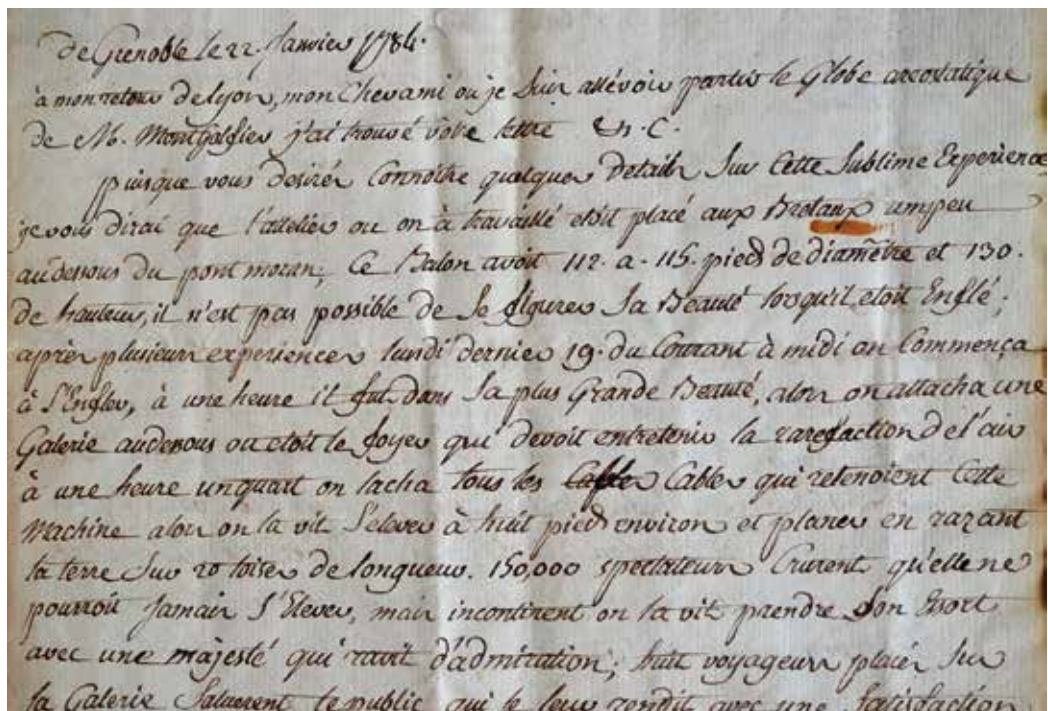 de Grenoble le 22. Janvier 1784.
à mon retour de lyon, mon Cher ami où je suis allé voir partir le Globe areostatique
de M. Montgolfier j'ai trouvé votre lettre &.C.
puisque vous desirés Connoitre quelques details sur Cette Sublime Experience
je vous dirai que l'attelier ou on à travaillé etoit placé aux Bretaux un peu
au dessous du pont moran, Ce Balon avoit 112. a. 115. pieds de diamètre et 130.
de hauteur, il n'est pas possible de se figurer sa Beauté lorsqu'il etoit Enflé;
après plusieurs experiences lundi dernier 19. du Courant à midi on Commença
à l'Enfler, à une heure il fut dans sa plus Grande Beauté, alors on attacha une
Galerie au dessous ou etoit le foyer qui devoit entretenir la rarefaction de l'air
à une heure un quart on lacha tous les Cables qui retenoient Cette
Machine alors on la vit S'elever à huit pieds environ et planer en razant
la terre sur 20 toises de longueur. 150,000 spectateurs Crurent qu'elle ne
pourroit Jamais S'Elever, mais incontinent on la vit prendre son Essort
avec une majesté qui ravit d'admiration; huit voyageurs placés sur
la Galerie Saluerent le public qui le leur rendit avec une Satisfaction